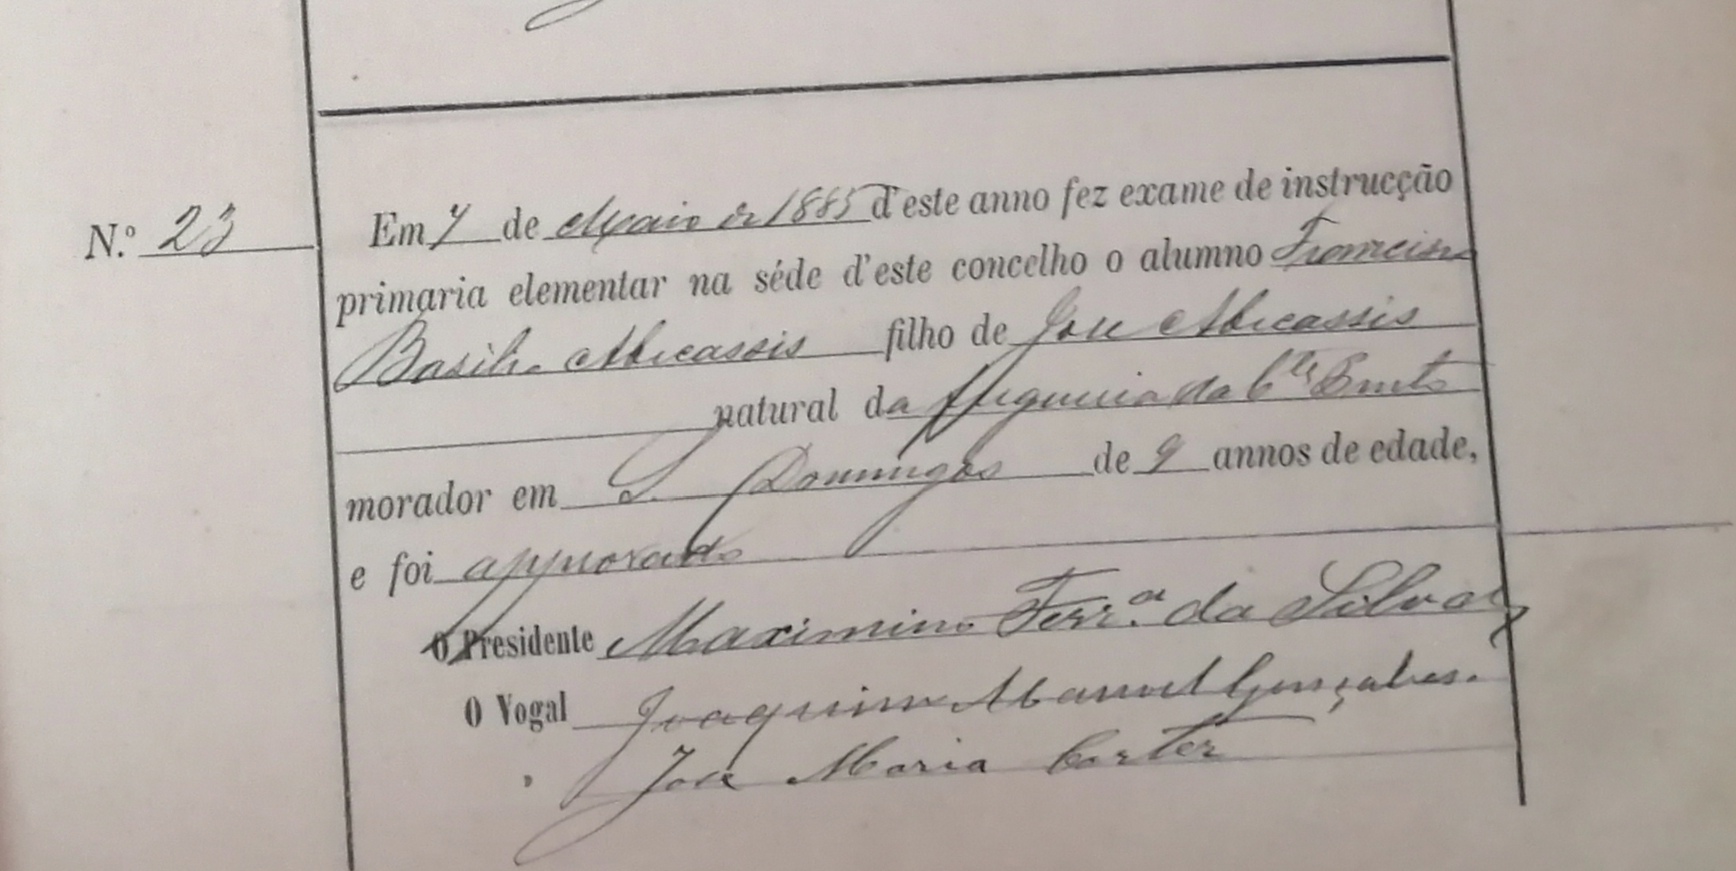 N.º 23
Em 7 de Maio de 1885 d'este anno fez exame de instrucção
primaria elementar na séde d'este concelho o alumno Francisco
Basilio Abecassis filho de José Abecassis
natural da
morador em S. Domingos de 9 annos de edade,
e foi approvado
O Presidente Maximino Ferr.ª da Silva
O Vogal Joaquim Manuel Gonçalves.
" José Maria